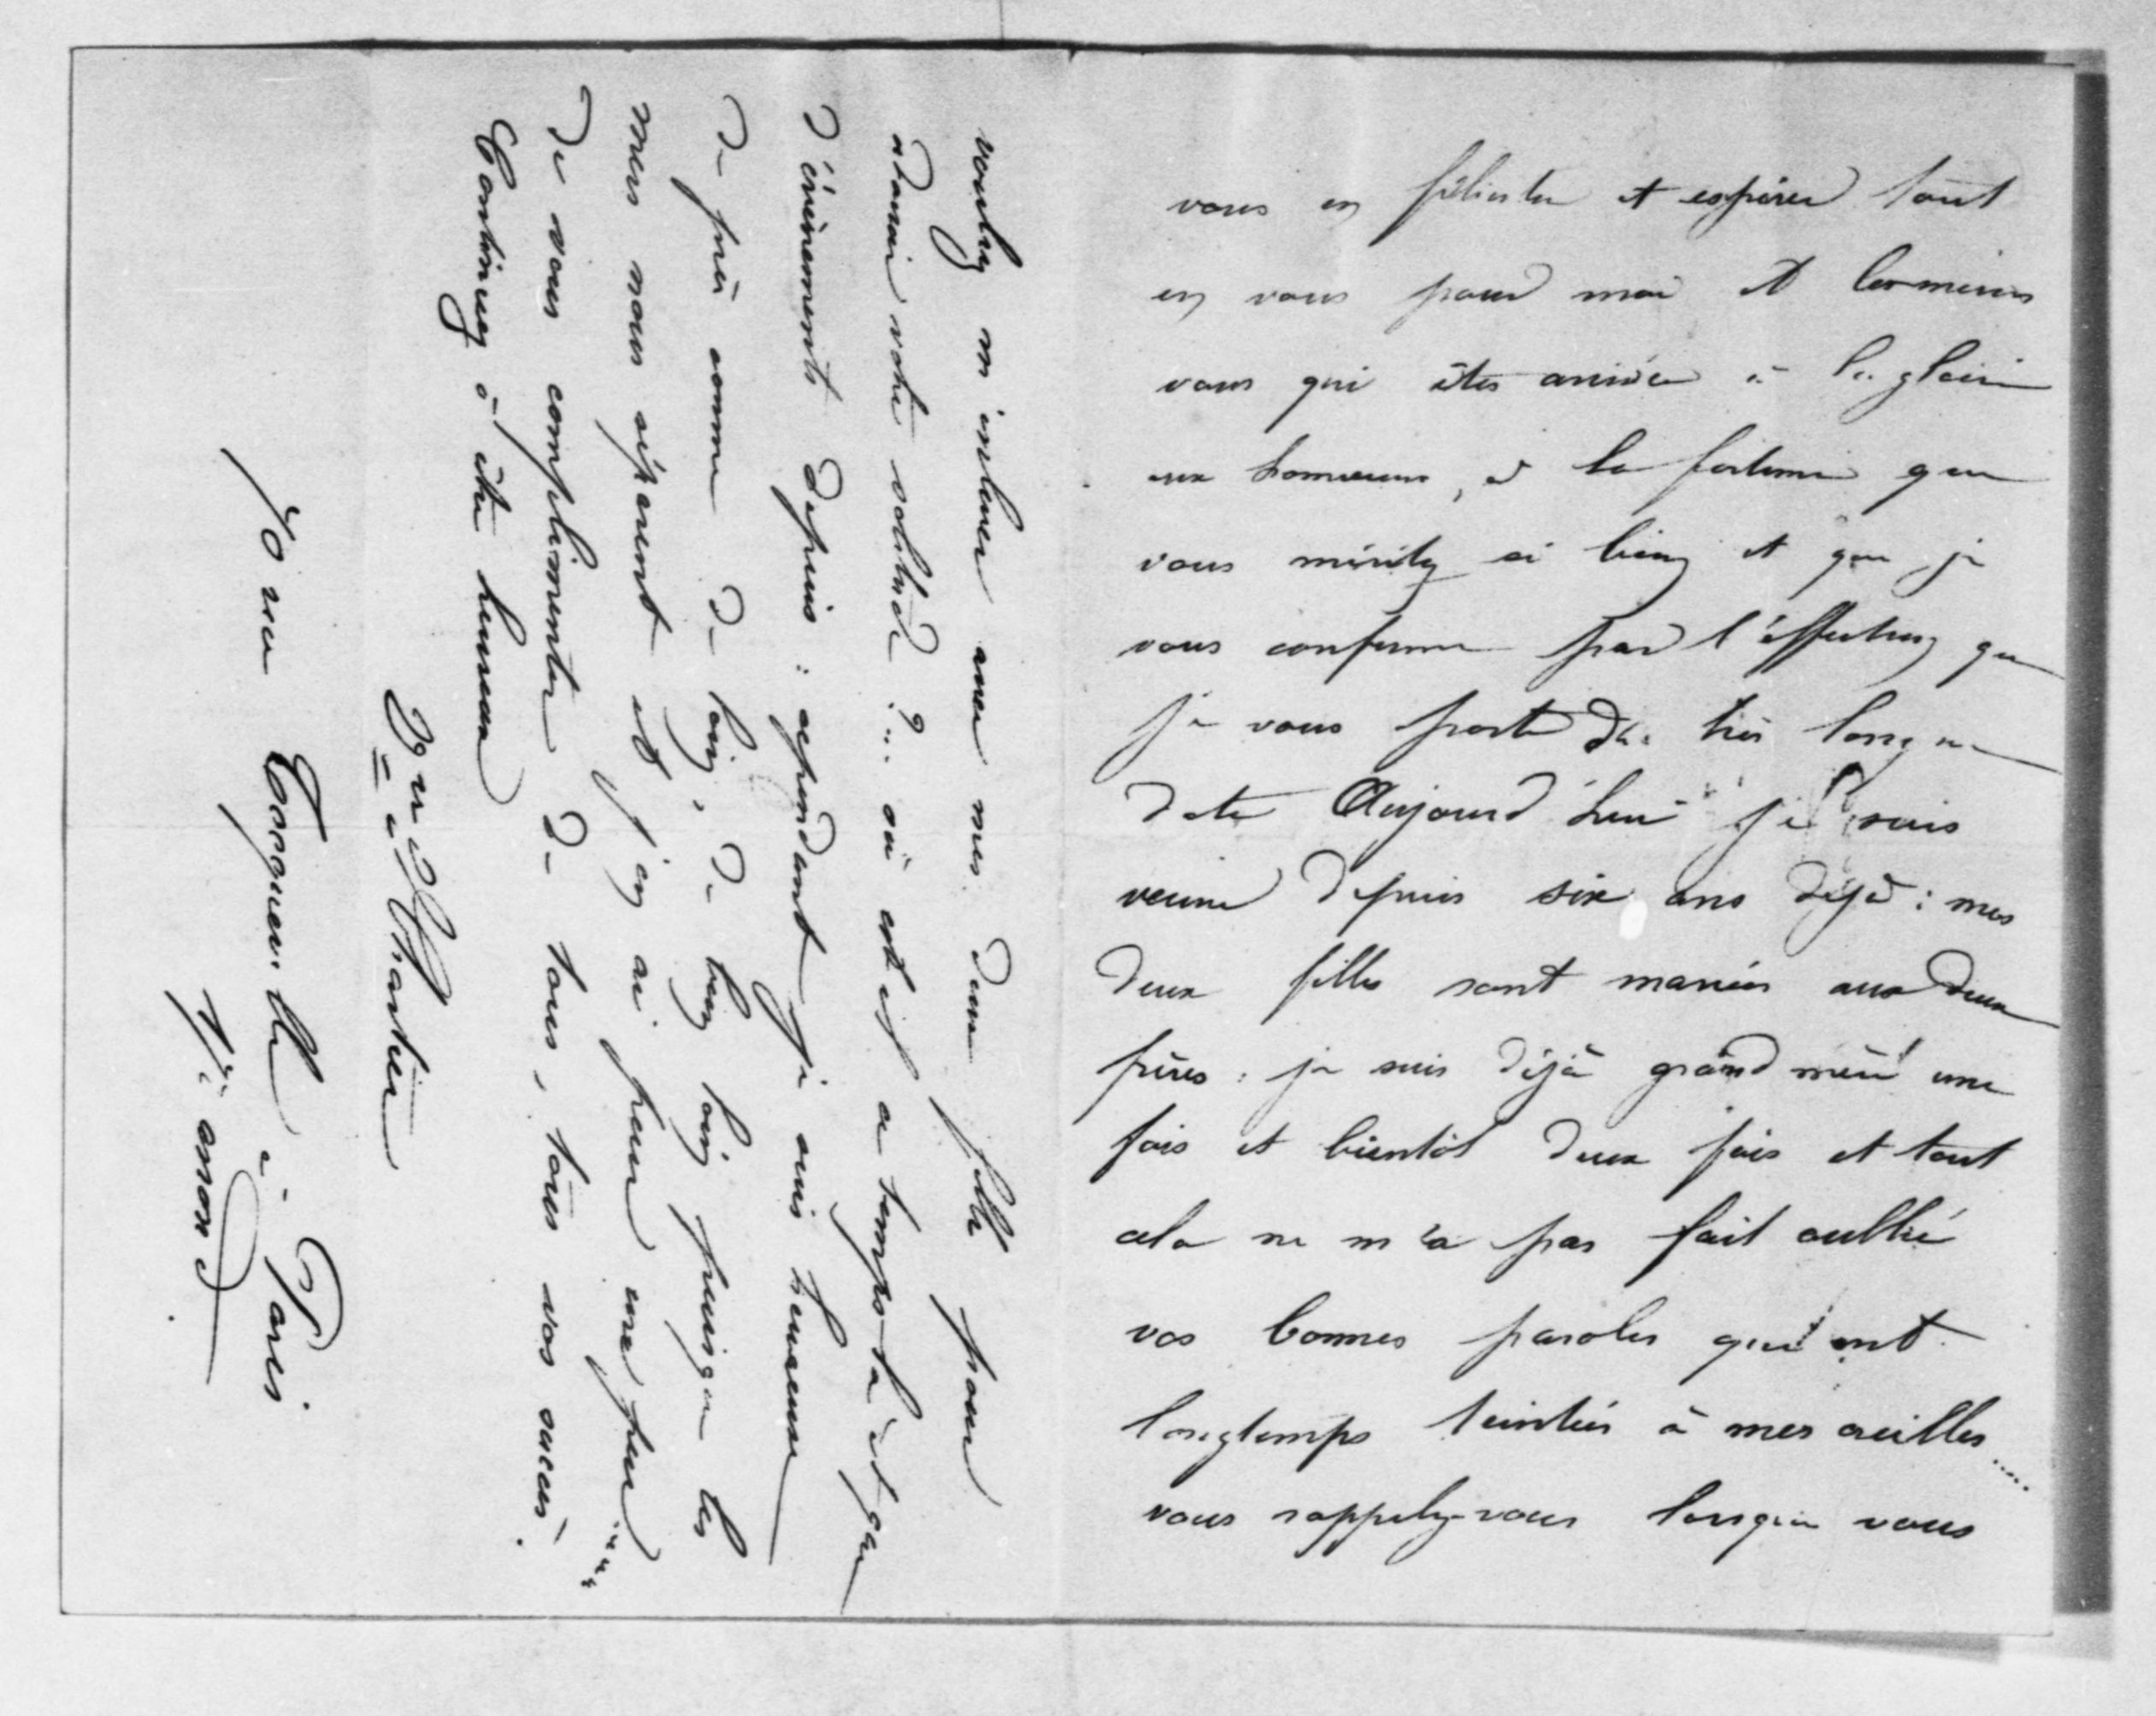 vous en féliciter et espérer tout
en vous pour moi et les miens
vous qui êtes arrivée à la gloire
aux honneurs, à la fortune que
vous méritez si bien et que je
vous confirme par l'affection que
je vous porte de très longue
date Aujourd'hui je suis
veuve depuis six ans déjà : mes
deux filles sont mariées aux deux
frères : je suis déjà grand mère une
fois et bientôt deux fois et tout
cela ne m'a pas fait oublié
vos bonnes paroles qui ont
longtemps teintées à mes oreilles....
vous rappelez-vous lorsque vous
vouliez m'enlever avec mes deux filles pour
votre ?... où est il ce temps-là et que
d'évènements depuis : cependant je suis heureuse
de près comme de loin, de bien loin puisque les
mers nous séparent et j'en ai peur une peur....
de vous complimenter de tous, tous vos succès.
Continuez à être heureuse
Chartier
70 rue à Paris